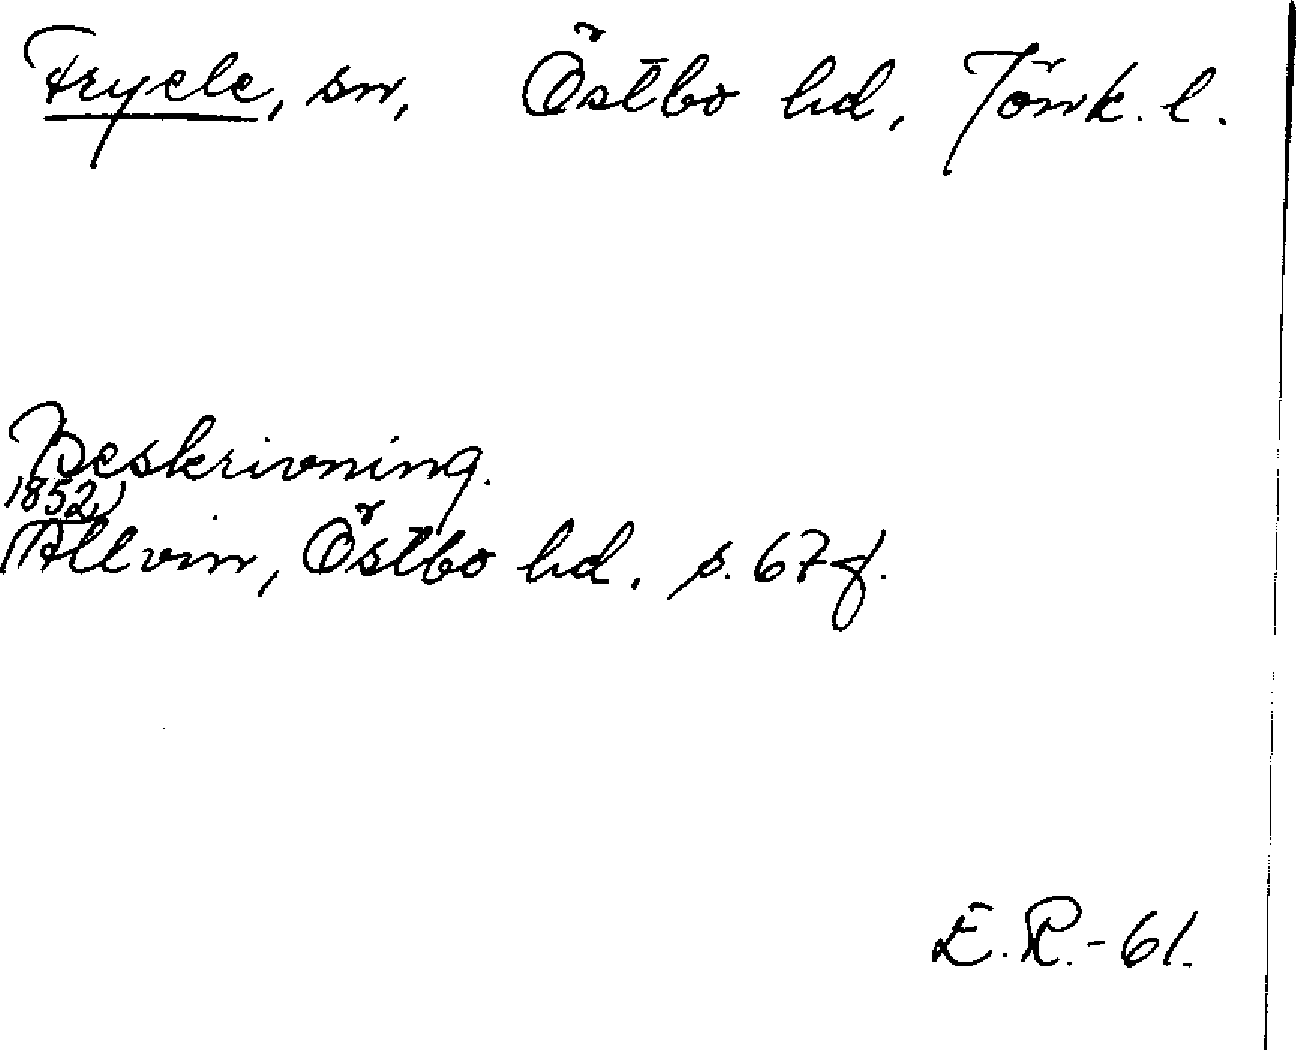 Fryele, sn, Östbo hd, Jönk. l.
Beskrivning.
1852,
Allvin, Östbo hd. s. 67 f.
E.R.-61.